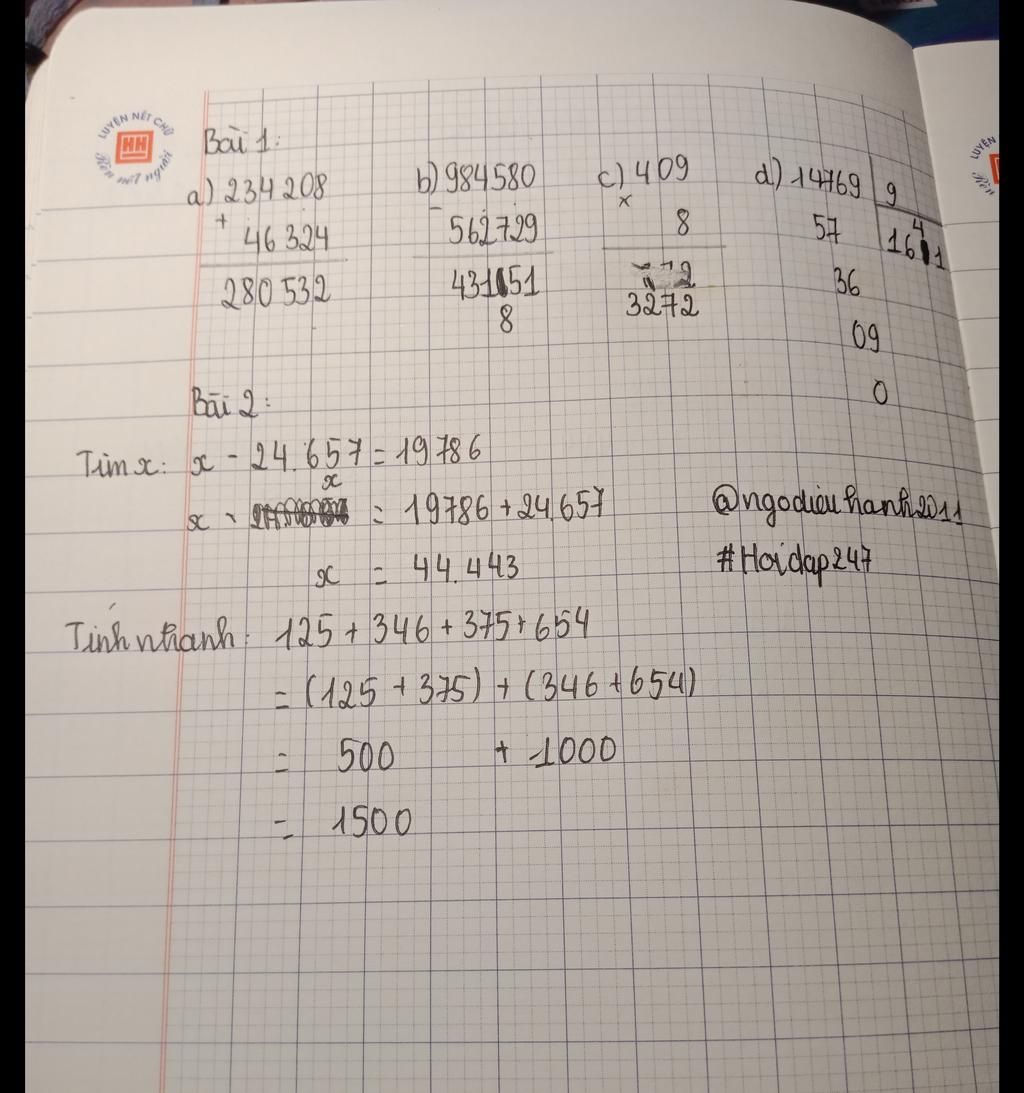 LUYỆN NÉT CHỮ
HH
Rèn nết người
LUYỆN
Rèn
Bài 1:
a) 234208 b) 984580 c) 409 d) 14769 9
+ 46324 - 562729 x 8 57 16 4 1
280532 431 51 3272 36
8 09
0
Bài 2:
Tìm x: x - 24.657 = 19786
x
x = 19786 + 24.657 @ngodieuhanh2011
x = 44.443 #Hoidap247
Tính nhanh: 125 + 346 + 375 + 654
= (125 + 375) + (346 + 654)
= 500 + 1000
= 1500